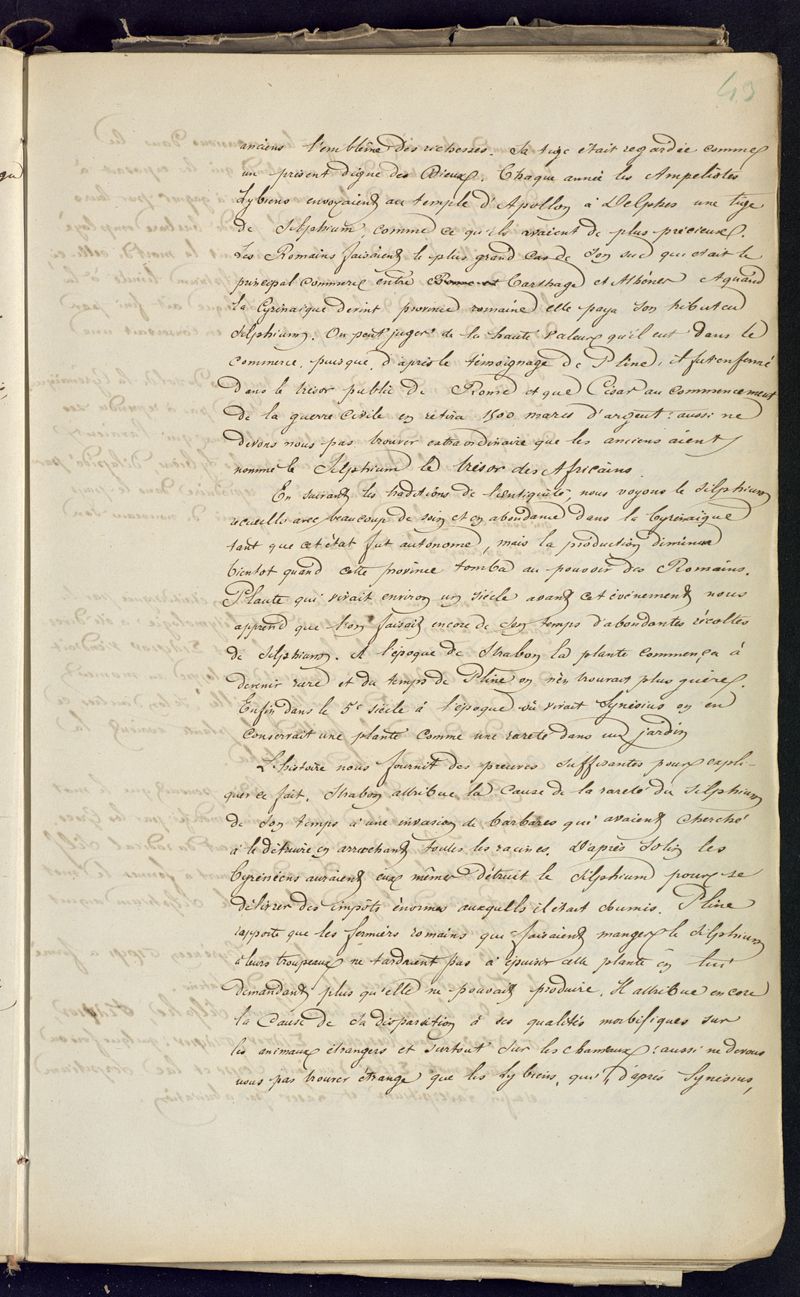 43
anciens l'emblême des richesses. Sa tige était regardée comme
un présent digne des Dieux. Chaque année les Ampeliotes
Lybiens envoyaient au temple d'Apollon à Delphes une tige
de Silphium, comme ce qu'ils avaient de plus précieux.
Les Romains faisaient le plus grand cas de son suc qui était le
principal commerce entre Rome et Carthage et Athènes et quand
la Cyrénaïque devint province romaine elle paya son tribut en
Silphium. On peut juger de la haute valeur qu'il eut dans le
commerce, puisque, d'après le témoignage de Pline, il fut enfermé
dans le trésor public de Rome et que César au commencement
de la guerre civile en retira 1500 marcs d'argent : aussi ne
devons nous pas trouver extraordinaire que les anciens aient
nommé le Silphium le trésor des Africains.
En suivant les traditions de l'antiquité, nous voyons le silphium
recueilli avec beaucoup de soin et en abondance dans la Cyrénaïque
tant que cet état fut autonome, mais la production diminua
bientot quand cette province tomba au pouvoir des Romains.
Plaute qui vivait environ un siècle avant cet événement nous
apprend que l'on faisait encore de son temps d'abondantes récoltes
de Silphium. A l'époque de Strabon la plante commença à
devenir rare et du temps de Pline on n'en trouvait plus guères.
Enfin dans le 5e siècle à l'époque où vivait Synésius on en
conservait une plante comme une rareté dans un jardin
L'histoire nous fournit des preuves suffisantes pour expli-
quer ce fait. Strabon attribue la cause de la rareté du Silphium
de son temps à une invasion de barbares qui avaient cherché
à le détruire en arrachant toutes les racines. D'après Solin les
Cyrénéens auraient eux mêmes détruit le Silphium pour se
délivrer des impôts énormes auxquels il était soumis. Pline
rapporte que les fermiers romains qui faisaient manger le Silphium
à leurs troupeaux ne tardaient pas à épuiser cette plante en lui
demandant plus qu'elle ne pouvait produire. Il attribue encore
la cause de sa disparition à ses qualités morbifiques sur
les animaux étrangers et surtout sur les chameaux : aussi ne devons
nous pas trouver étrange que les Lybiens, qui, d'après Synésius,